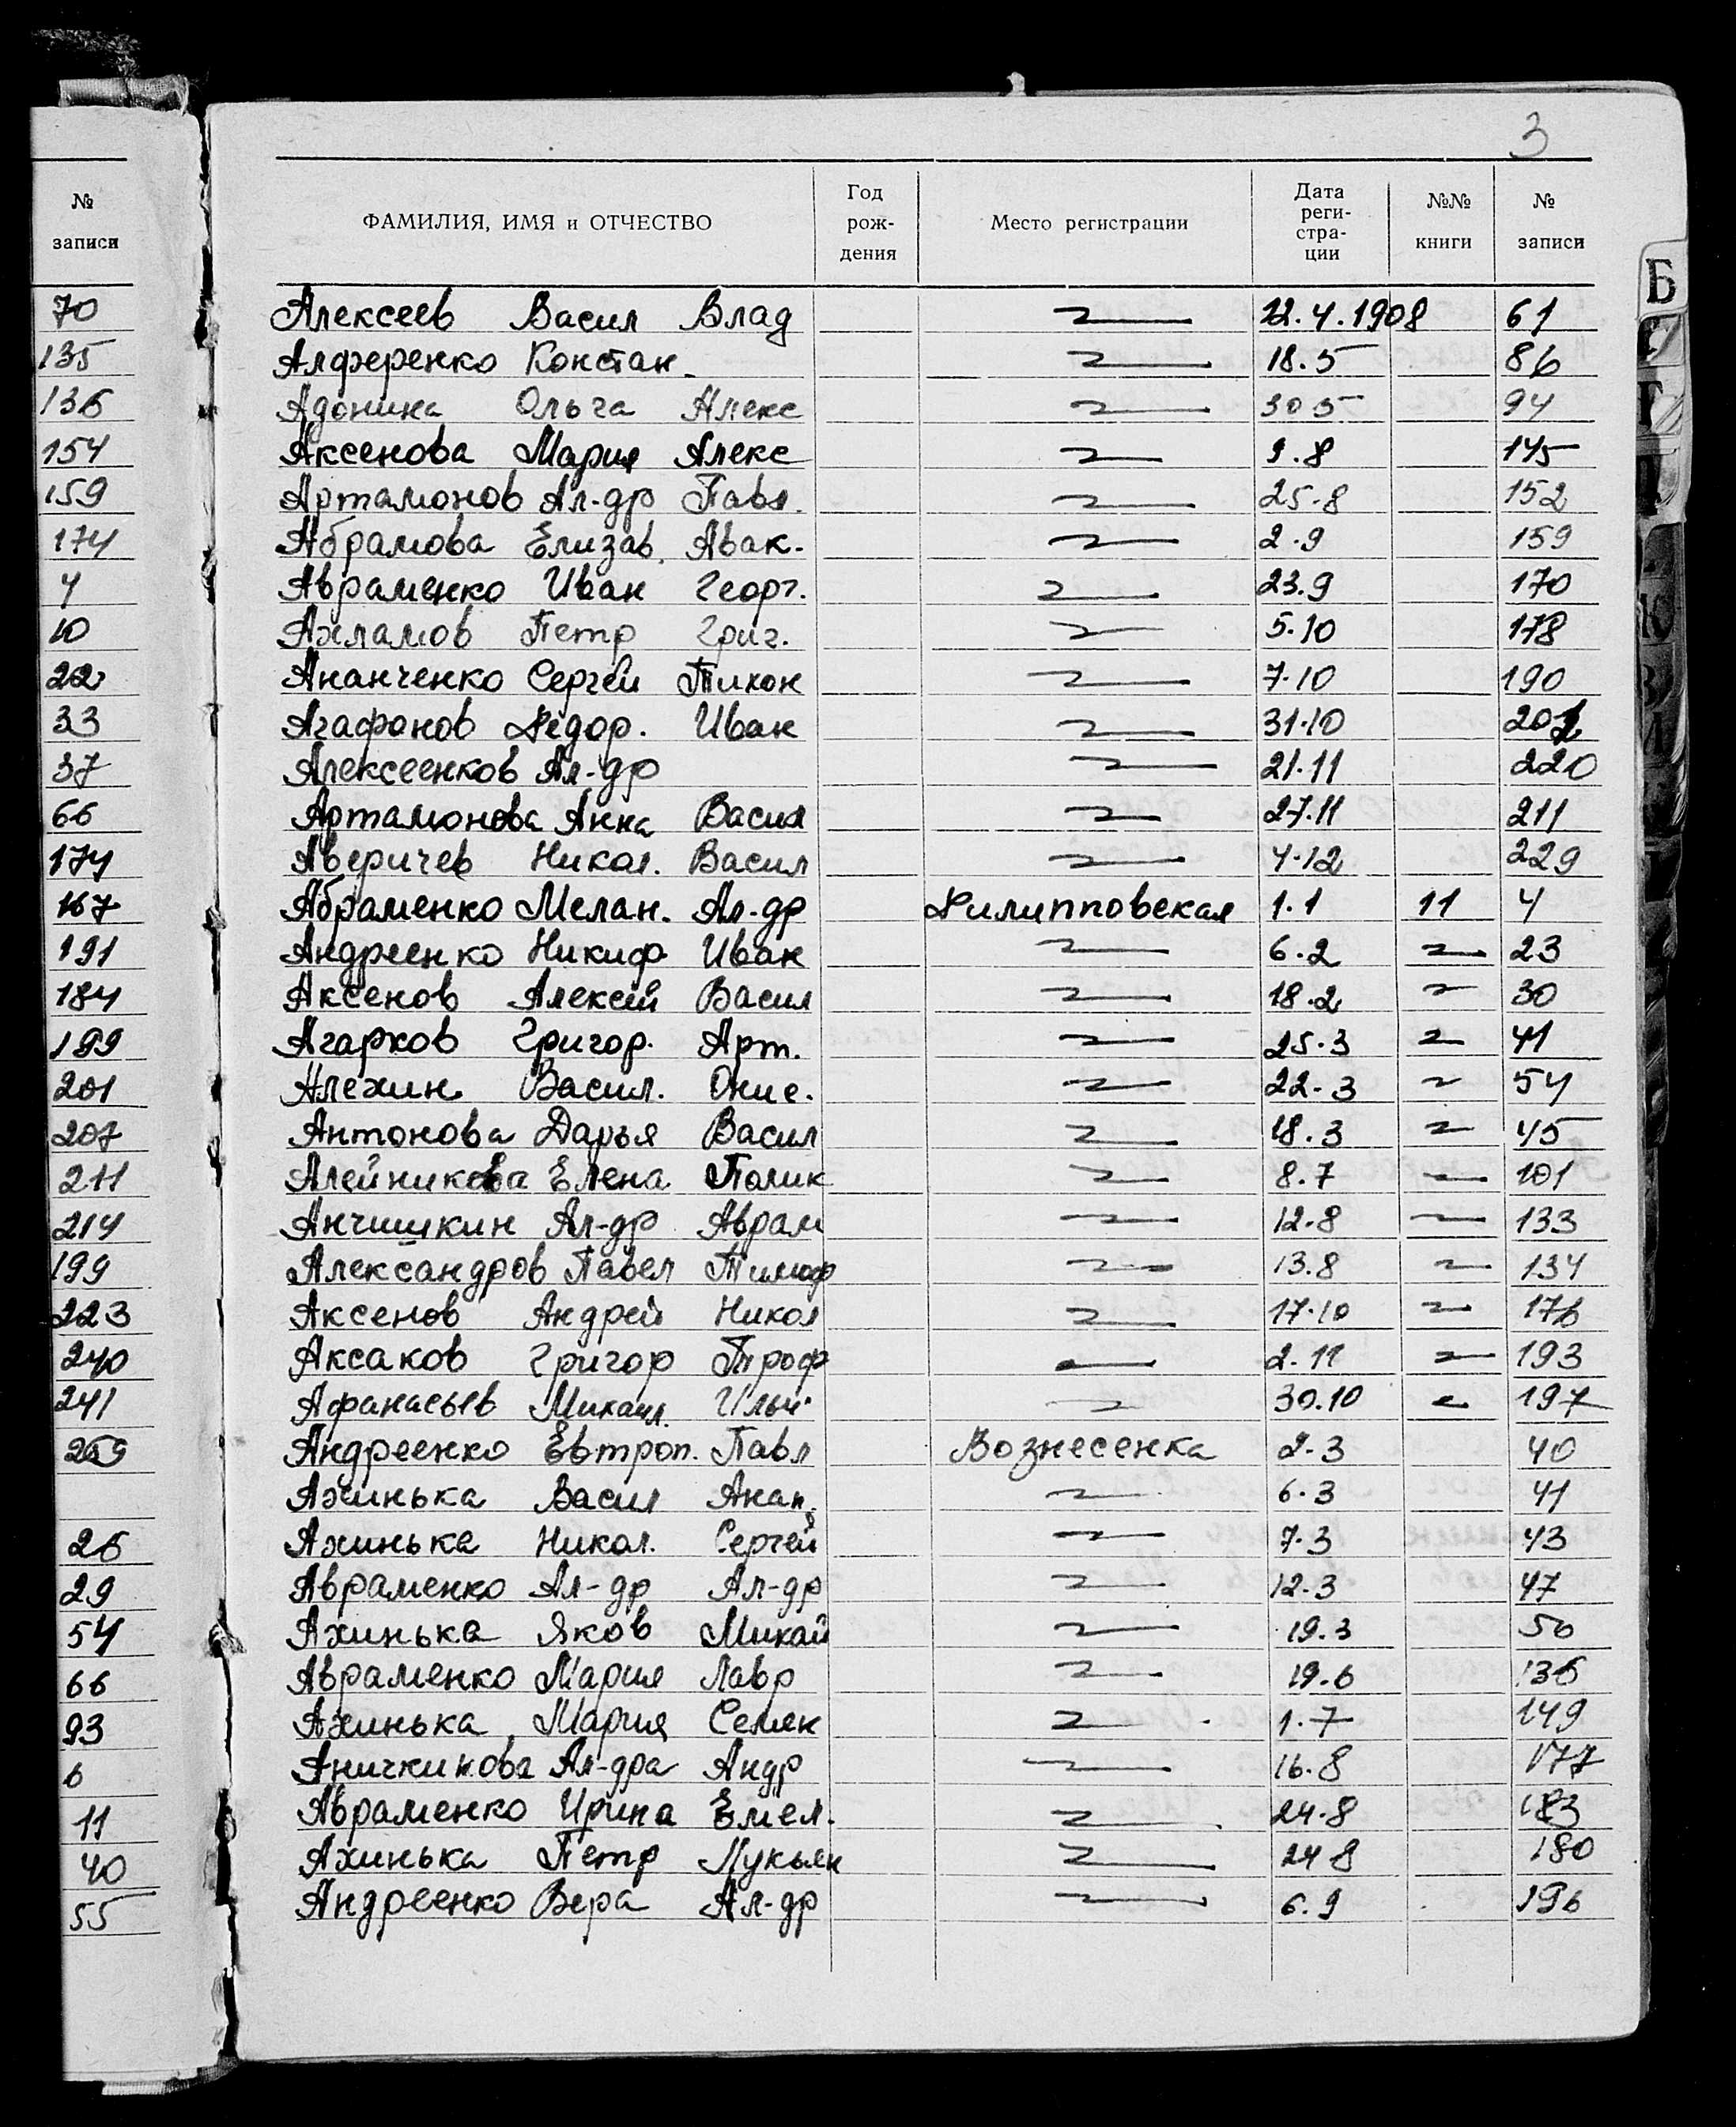 3
№ записи
ФАМИЛИЯ, ИМЯ и ОТЧЕСТВО Год рож- дения Место регистрации Дата реги- стра- ции №№ книги № записи
Б
70
135
136
154
159
174
4
10
22
33
37
66
174
167
191
184
199
201
207
211
214
199
223
240
241
259
26
29
54
66
93
6
11
40
55
Алексеев Васил Влад 12.4.1908 61
Алференко Констан. 18.5 86
Адонина Ольга Алекс 30 5 94
Аксенова Мария Алекс 9.8 145
Артамонов Ал-др Павл. 25.8 152
Абрамова Елизав. Авак. 2.9 159
Авраменко Иван Георг. 23.9 170
Ахламов Петр Григ. 5.10 178
Ананченко Сергей Тихон 7.10 190
Агафонов Федор. Иван 31.10 207
Алексеенков Ал-др 21.11 220
Артамонова Анна Васил 27.11 211
Аверичев Никол. Васил 4.12 229
Абраменко Мелан. Ал-др Филипповская 1.1 11 4
Андреенко Никиф. Иван 6.2 23
Аксенов Алексей Васил 18.2 30
Агарков Григор. Арт. 25.3 41
Алехин Васил. Онис. 22.3 54
Антонова Дарья Васил 18.3 45
Алейникова Елена Полик 8.7 101
Анчишкин Ал-др Аврам 12.8 133
Александров Павел Тимоф 13.8 134
Аксенов Андрей Никол 17.10 176
Аксаков Григор Троф 2.11 193
Афанасьев Михаил. Ильи. 30.10 197
Андреенко Евтроп. Павл Вознесенка 2.3 40
Ахинька Васил Анан. 6.3 41
Ахинька Никол. Сергей 7.3 43
Авраменко Ал-др Ал-др 12.3 47
Ахинька Яков Михай 19.3 50
Авраменко Мария Лавр 19.6 136
Ахинька Мария Семен 1.7 149
Аничкинова Ал-дра Андр 16.8 177
Авраменко Ирина Емел. 24.8 183
Ахинька Петр Лукьян 24 8 180
Андреенко Вера Ал-др 6.9 196